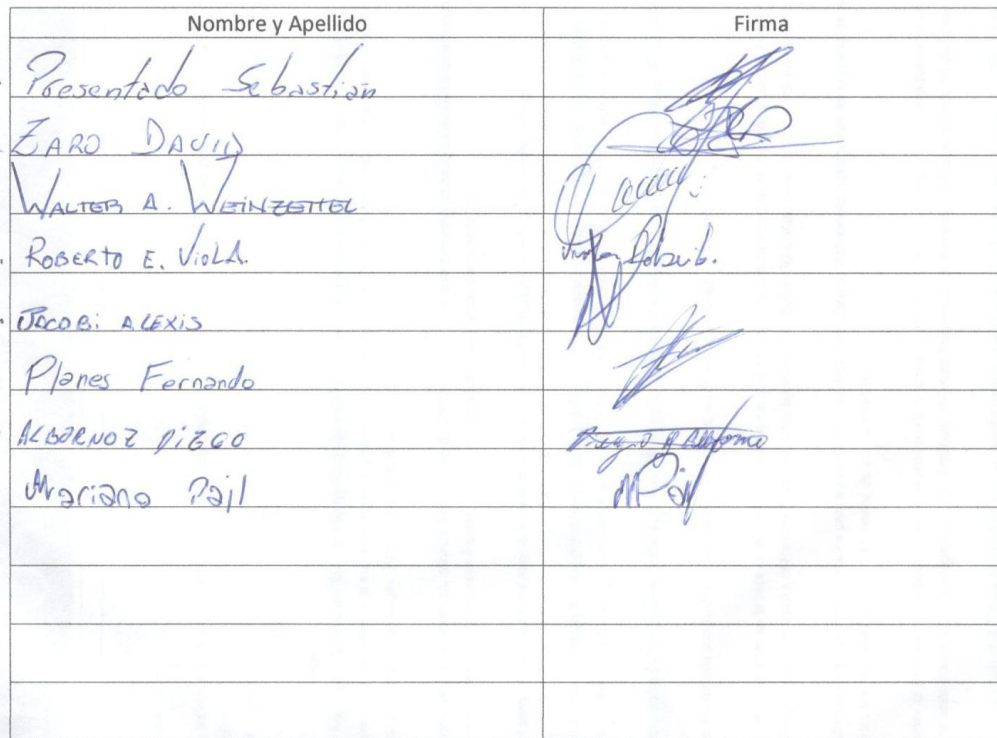 Nombre y Apellido Firma
Presentado Sebastián
ZARO DAVID
WALTER A. WEINZETTEL
ROBERTO E. VIOLA.
JACOBI ALEXIS
Planes Fernando
ALBORNOZ DIEGO
Mariano Pajl